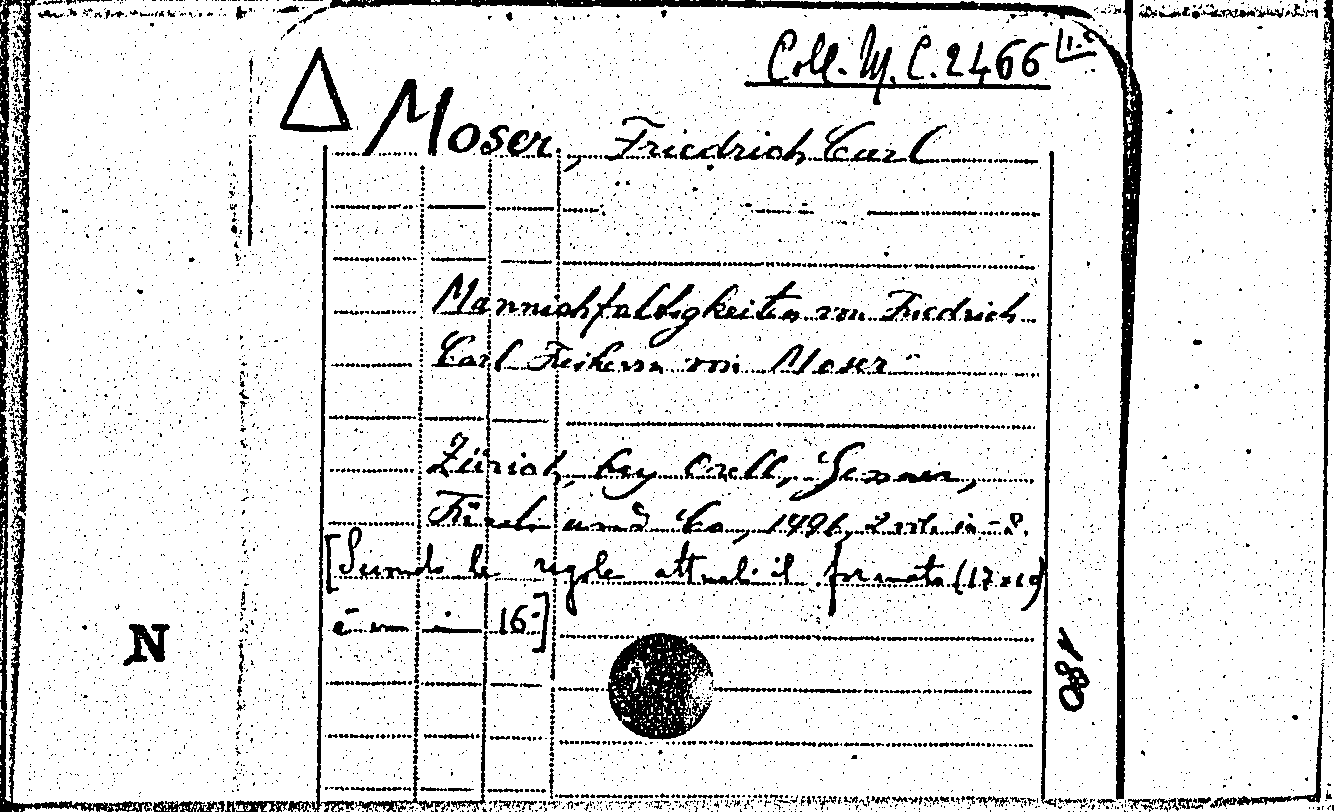 Coll. M. C. 2466 1-2
Moser, Friedrich Carl
Mannichfaltigkeiten von Friedrich
Carl Freiherrn von Moser
Zürich, bey Orell, Gessner,
Füssli und Co, 1796, 2 voll. in-8.
[Secondo le regole attuali il formato (17×10)
è un in 16.]
N
180